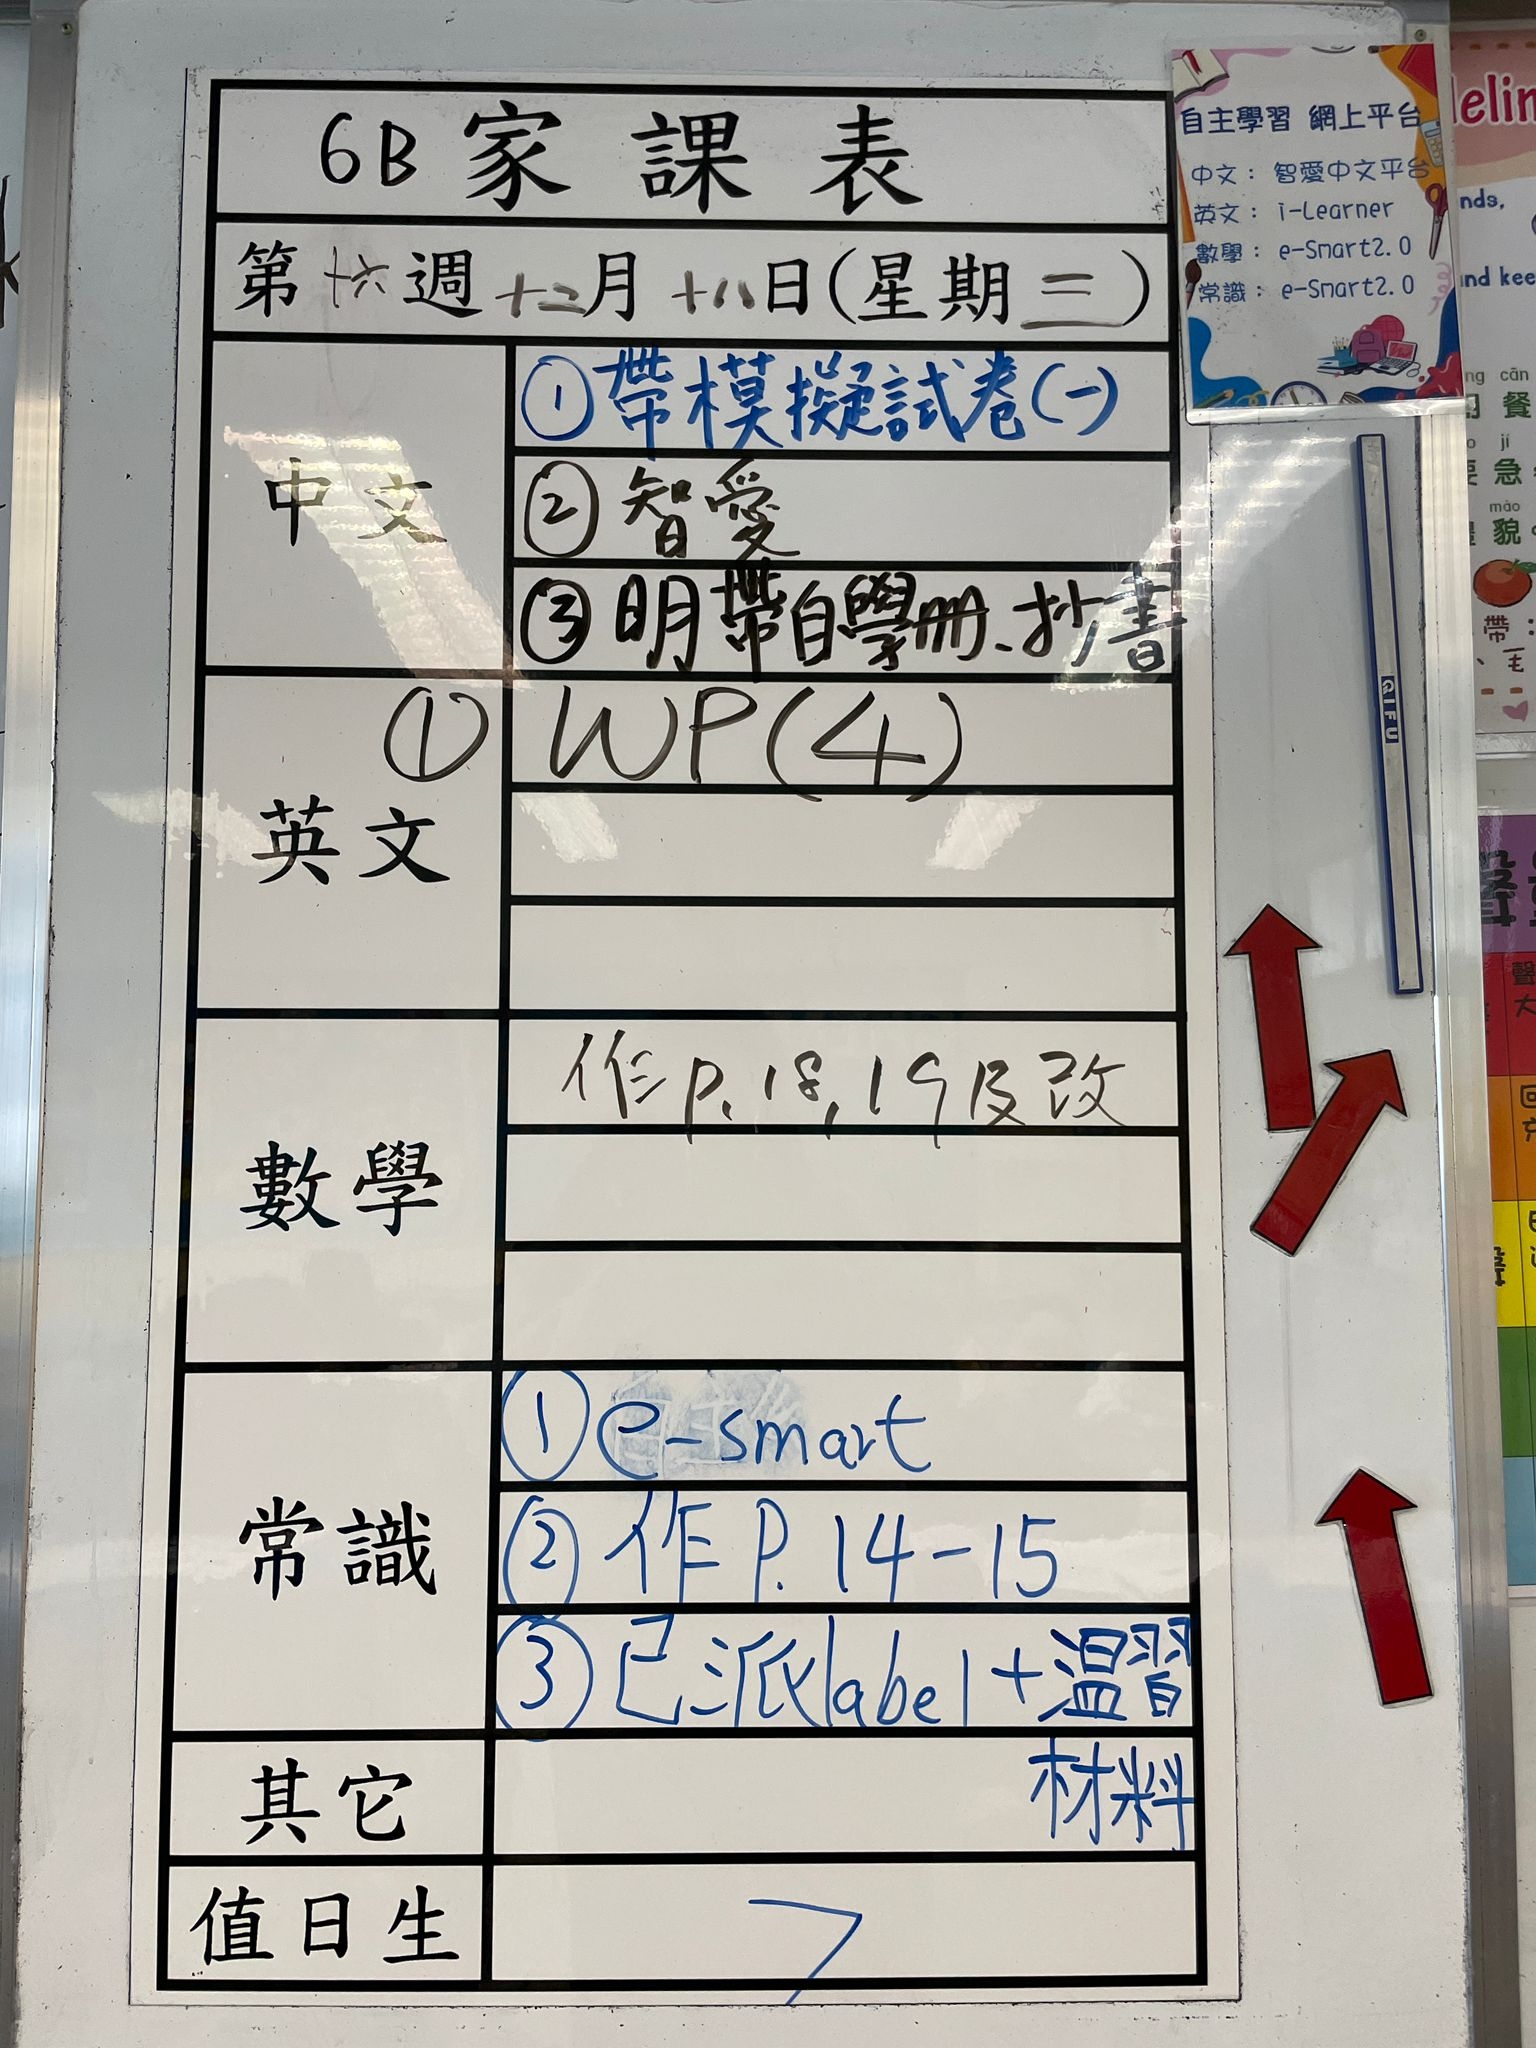 6B 家課表
第十六週十二月十八日(星期二)
中文
①帶模擬試卷(一)
②智愛
③明帶自學冊、抄書
英文
① WP(4)
數學
作P.18,19及改
常識
①e-smart
②作P.14-15
③已派label+溫習
材料
其它
值日生
7
自主學習 網上平台
中文：智愛中文平台
英文：i-Learner
數學：e-Smart2.0
常識：e-Smart2.0
GIFU
elin
nds,
and kee
ng cān
餐
jí
急
mào
貌
帶：